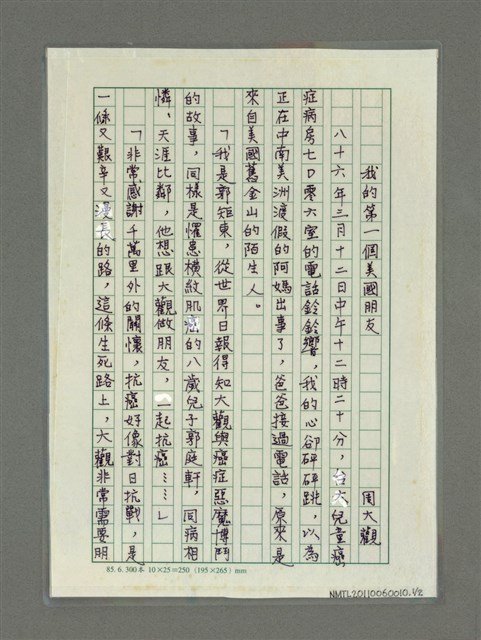 我的第一個美國朋友
周大觀
八十六年三月十二日中午十二時二十分，台大兒童癌
症病房七D零六室的電話鈴鈴響，我的心卻砰砰跳，以為
正在中南美洲渡假的阿媽出事了，爸爸接過電話，原來是
來自美國舊金山的陌生人。
「我是郭矩東，從世界日報得知大觀與癌症惡魔博鬥
的故事，同樣是懼患橫紋肌癌的八歲兒子郭庭軒，同病相
憐、天涯比鄰，他想跟大觀做朋友，一起抗癌……」
「非常感謝千萬里外的關懷，抗癌好像對日抗戰，是
一條又艱辛又漫長的路，這條生死路上，大觀非常需要朋
85. 6. 300本 10×25=250 (195×265) mm
NMTL20110060010.1/2